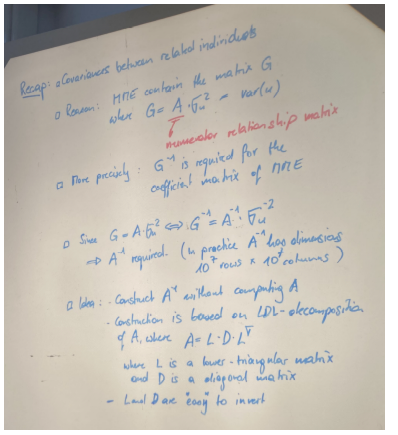 Recap: ▫ Covariances between related individuals
▫ Reason: MME contain the matrix G
where G = A · σᵤ² = var(u)
numerator relationship matrix
▫ More precisely: G⁻¹ is required for the
coefficient matrix of MME
▫ Since G = A · σᵤ² ⟺ G⁻¹ = A⁻¹ · σᵤ⁻²
⇒ A⁻¹ required. (In practice A⁻¹ has dimensions
10⁷ rows × 10⁷ columns)
▫ Idea: - Construct A⁻¹ without computing A
- Construction is based on LDL-decomposition
of A, where A = L · D · Lᵀ
where L is a lower-triangular matrix
and D is a diagonal matrix
- L and D are "easy" to invert